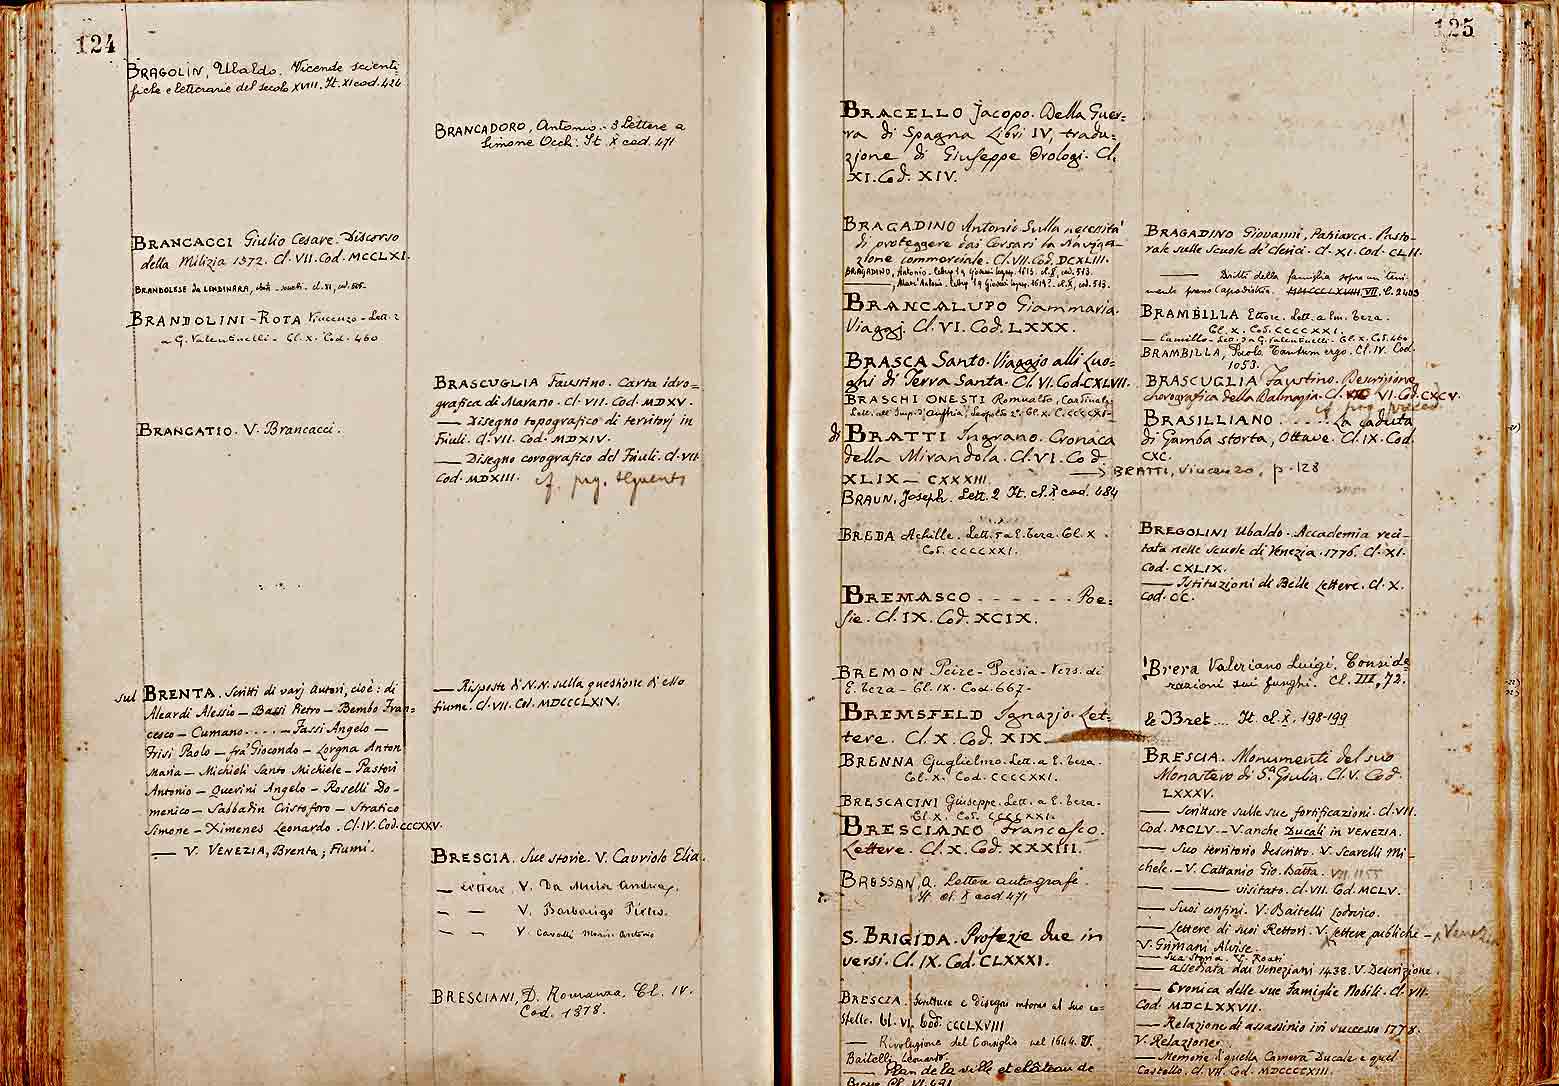 124
BRAGOLIN, Ubaldo. Vicende scienti-
fiche e letterarie del secolo XVIII. It. XI cod. 424
BRANCACCI Giulio Cesare. Discorso
della Milizia 1572. Cl. VII. Cod. MCCLXI.
BRANDOLESE da LENDINARA, cl. XI, cod. 525.
BRANDOLINI-ROTA Vincenzo - Lett. 2
a G. Valentinelli - Cl. X. Cod. 460
BRANCATIO. V. Brancacci.
sul BRENTA. Scritti di varj Autori, cioè: di
Aleardi Alessio - Bassi Pietro - Bembo Fran=
cesco - Cumano.... - Fassi Angelo -
Frisi Paolo - fra' Giocondo - Lorgna Anton
Maria - Michieli Santo Michiele - Pastori
Antonio - Querini Angelo - Roselli Do-
menico - Sabbadin Cristoforo - Stratico
Simone - Ximenes Leonardo. Cl. IV. Cod. CCCXXV.
— V. VENEZIA, Brenta; Fiumi.
BRANCADORO, Antonio. - 3 Lettere a
Simone Occhi. It. X cod. 471
BRASCUGLIA Faustino. Carta idro=
grafica di Marano. Cl. VII. Cod. MDXV.
— Disegno topografico di territorj in
Friuli. Cl. VII. Cod. MDXIV.
— Disegno corografico del Friuli. Cl. VII.
Cod. MDXIII. cf. pag. seguente
— Risposta di N.N. sulla questione di esso
fiume. Cl. VII. Cod. MDCCCLXIV.
BRESCIA. Sue storie. V. Cavriolo Elia.
— Lettere. V. Da Mula Andrea.
— — V. Barbarigo Pietro.
— — V. Cavalli Marin Antonio
BRESCIANI, D. Romanza. Cl. IV.
Cod. 1878.
125
BRACELLO Jacopo. Della Guer=
ra di Spagna Libri IV, tradu=
zione di Giuseppe Orologi. Cl.
XI. Cod. XIV.
BRAGADINO Antonio. Sulla necessità
di proteggere dai Corsari la naviga-
zione commerciale. Cl. VII. Cod. DCXLIII.
BRAGADINO, Antonio. cl. X, cod. 513.
—, Marc'Antonio. cl. X, cod. 513.
BRANCALUPO Giammaria.
Viaggj. Cl. VI. Cod. LXXX.
BRASCA Santo. Viaggio alli Luo=
ghi di Terra Santa. Cl. VI. Cod. CXLVII.
BRASCHI ONESTI Romualdo, Cardinale.
Lett. all'Imp. d'Austria, Leopoldo 2°. Cl. X. C. CCCCXI-
di BRATTI Ingrano. Cronaca
della Mirandola. Cl. VI. Cod.
XLIX — CXXXIII.
→ BRATTI, Vincenzo, p. 128
BRAUN, Joseph. Lett. 2 It. cl. X cod. 484
BREDA Achille. Lett. 5 a E. Teza. Cl. X.
Cod. CCCCXXI.
BREMASCO - - - - - - Poe=
sie. Cl. IX. Cod. XCIX.
BREMON Peire - Poesia - Vers. di
E. Teza - Cl. IX. Cod. 667-
BREMSFELD Ignazio. Let-
tere. Cl. X. Cod. XIX.
BRENNA Guglielmo. Lett. a E. Teza.
Cl. X. Cod. CCCCXXI.
BRESCACINI Giuseppe. Lett. a E. Teza.
Cl. X. Cod. CCCCXXI.
BRESCIANO Francesco.
Lettere. Cl. X. Cod. XXXIII.
BRESSAN, A. Lettere autografe.
It. cl. X cod 471
S. BRIGIDA. Profezie due in
versi. Cl. IX. Cod. CLXXXI.
BRESCIA. Scritture e disegni intorno al suo ca-
stello. Cl. VI. Cod. CCCLXVIII
— Rivoluzione del Consiglio nel 1644. V.
Baitelli Leonardo.
— Plan de la ville et château de
BRAGADINO Giovanni, Patriarca. Pasto-
rale sulle Scuole de' Clerici. Cl. XI. Cod. CLII.
— Dritto della famiglia sopra un teni-
mento presso Capodistria. VII. C. 2403
BRAMBILLA Ettore. Lett. a Em. Teza.
Cl. X. Cod. CCCCXXI.
— Camillo - Lett. a G. Valentinelli. Cl. X. Cod. 460
BRAMBILLA, Paolo. Tantum ergo. Cl. IV. Cod.
1053.
BRASCUGLIA Faustino. Descrizione
chorografica della Dalmazia. Cl. VI. Cod. CXCV.
cf. pag. preced.
BRASILLIANO ..... La caduta
di Gamba storta, Ottave. Cl. IX. Cod.
CXC.
BREGOLINI Ubaldo. Accademia reci-
tata nelle Scuole di Venezia. 1776. Cl. XI.
Cod. CXLIX.
— Istituzioni di Belle Lettere. Cl. X.
Cod. CC.
Brera Valeriano Luigi. Conside=
razioni sui funghi. Cl. III, 72.
le Bret.... It. cl. X. 198-199
BRESCIA. Monumenti del suo
Monastero di S.ta Giulia. Cl. V. Cod.
LXXXV.
— Scritture sulle sue fortificazioni. Cl. VII.
Cod. MCLV. - V. anche Ducali in VENEZIA.
— Suo territorio descritto. V. Scarelli Mi-
chele. - V. Cattanio Gio. Batta. VII 1155
— — visitato. Cl. VII. Cod. MCLV.
— Suoi confini. V. Baitelli Lodovico.
— Lettere di suoi Rettori. V. Lettere pubbliche - Venezia
V. Grimani Alvise.
— Sua Storia. V. Rosti
— assediata dai Veneziani 1438. V. Descrizione.
— Cronica delle sue Famiglie Nobili. Cl. VII.
Cod. MDCLXXVII.
— Relazione di assassinio ivi successo 1778.
V. Relazione.
— Memorie di quella Camera Ducale e quel
Castello. Cl. VII. Cod. MDCCCCXIII.